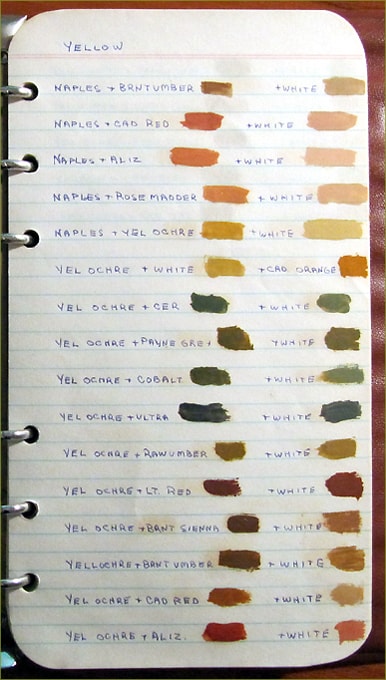 YELLOW
NAPLES + BRNTUMBER +WHITE
NAPLES + CAD RED +WHITE
NAPLES + ALIZ +WHITE
NAPLES + ROSE MADDER +WHITE
NAPLES + YEL OCHRE +WHITE
YEL OCHRE + WHITE +CAD. ORANGE
YEL OCHRE + CER +WHITE
YEL OCHRE + PAYNE GREY +WHITE
YEL OCHRE + COBALT +WHITE
YEL OCHRE + ULTRA +WHITE
YEL OCHRE + RAWUMBER +WHITE
YEL OCHRE + LT. RED +WHITE
YEL OCHRE + BRNT SIENNA +WHITE
YELLOCHRE + BRNTUMBER +WHITE
YEL OCHRE + CAD RED +WHITE
YEL OCHRE + ALIZ. +WHITE